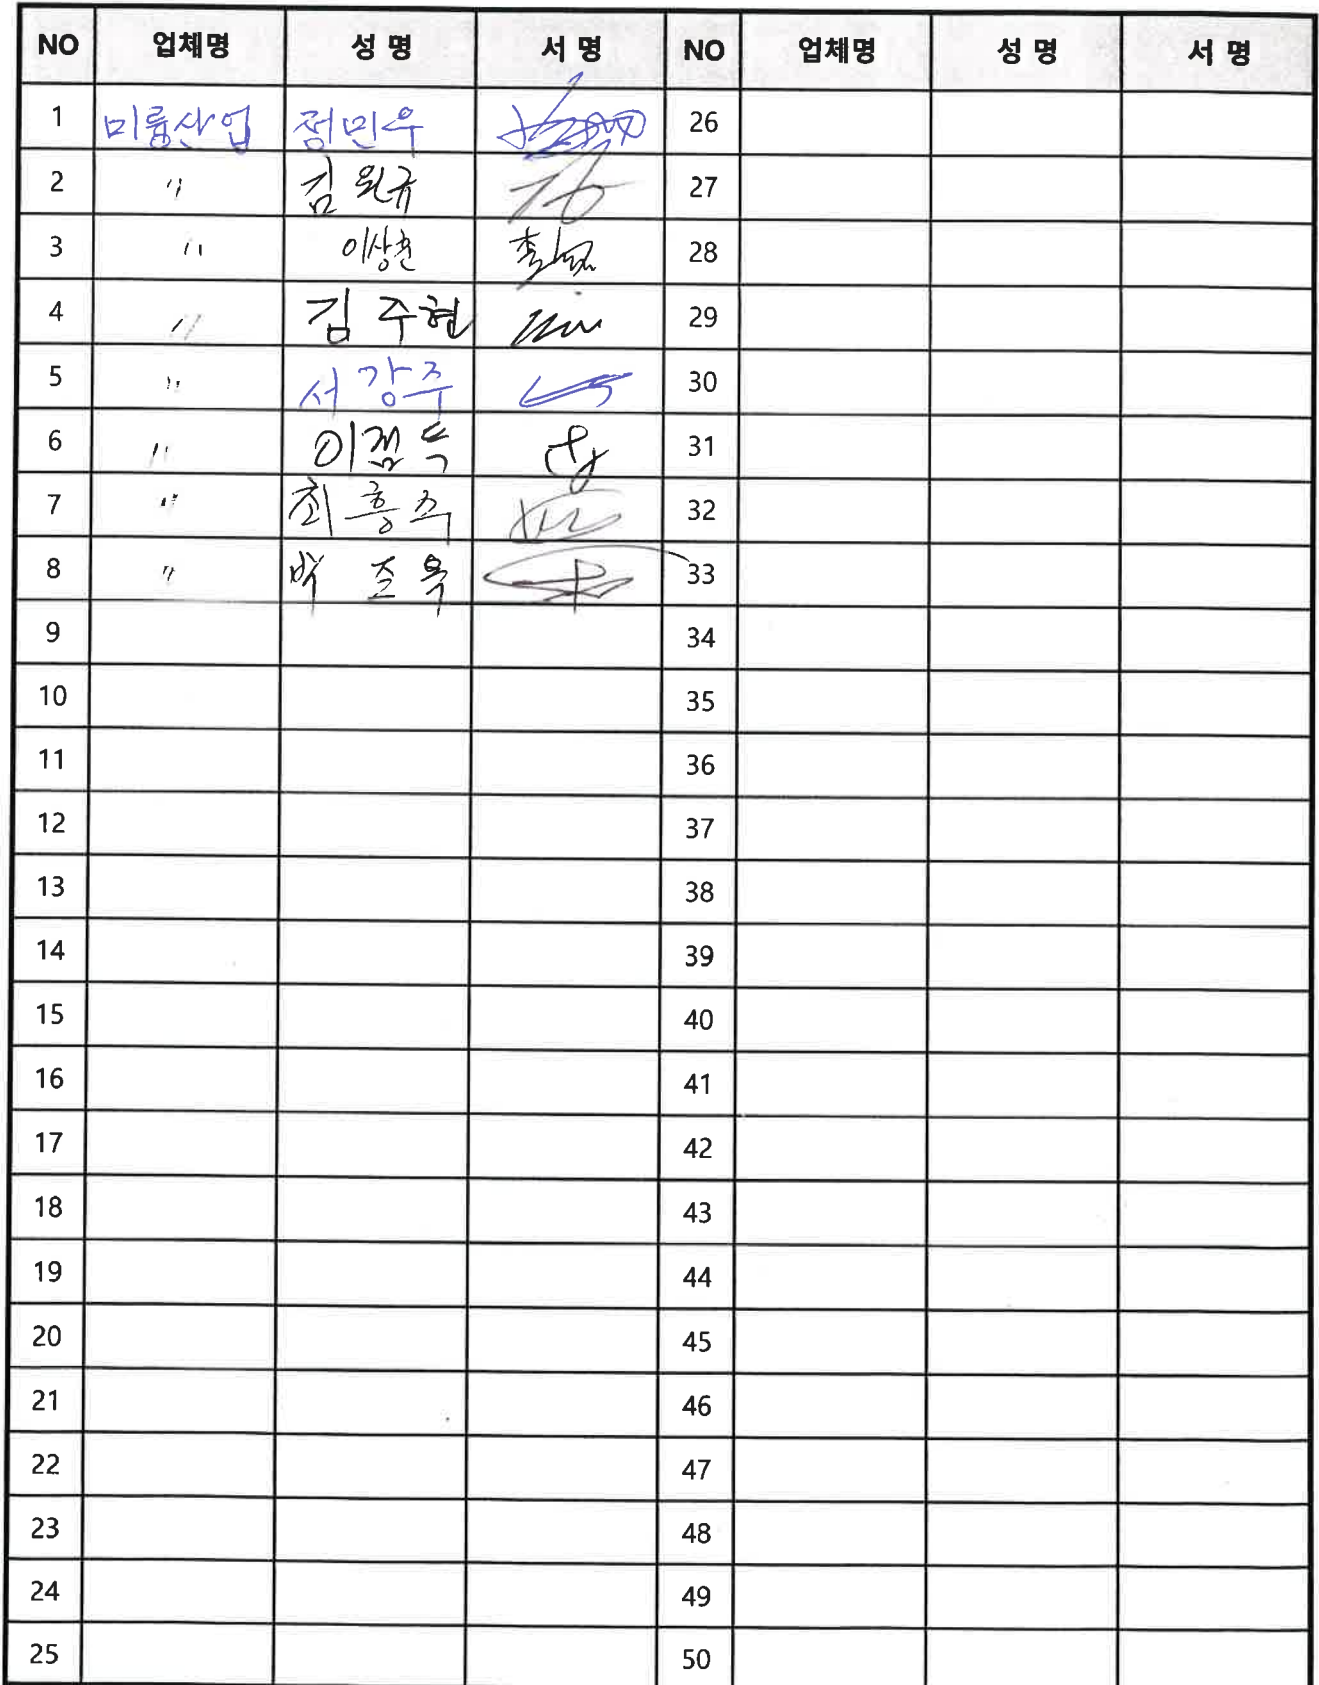 NO 업체명 성 명 서 명 NO 업체명 성 명 서 명
1 미륭산업 정민우 26
2 〃 김원규 27
3 〃 이상훈 28
4 〃 김주현 29
5 〃 서강주 30
6 〃 31
7 〃 32
8 〃 33
9 34
10 35
11 36
12 37
13 38
14 39
15 40
16 41
17 42
18 43
19 44
20 45
21 46
22 47
23 48
24 49
25 50